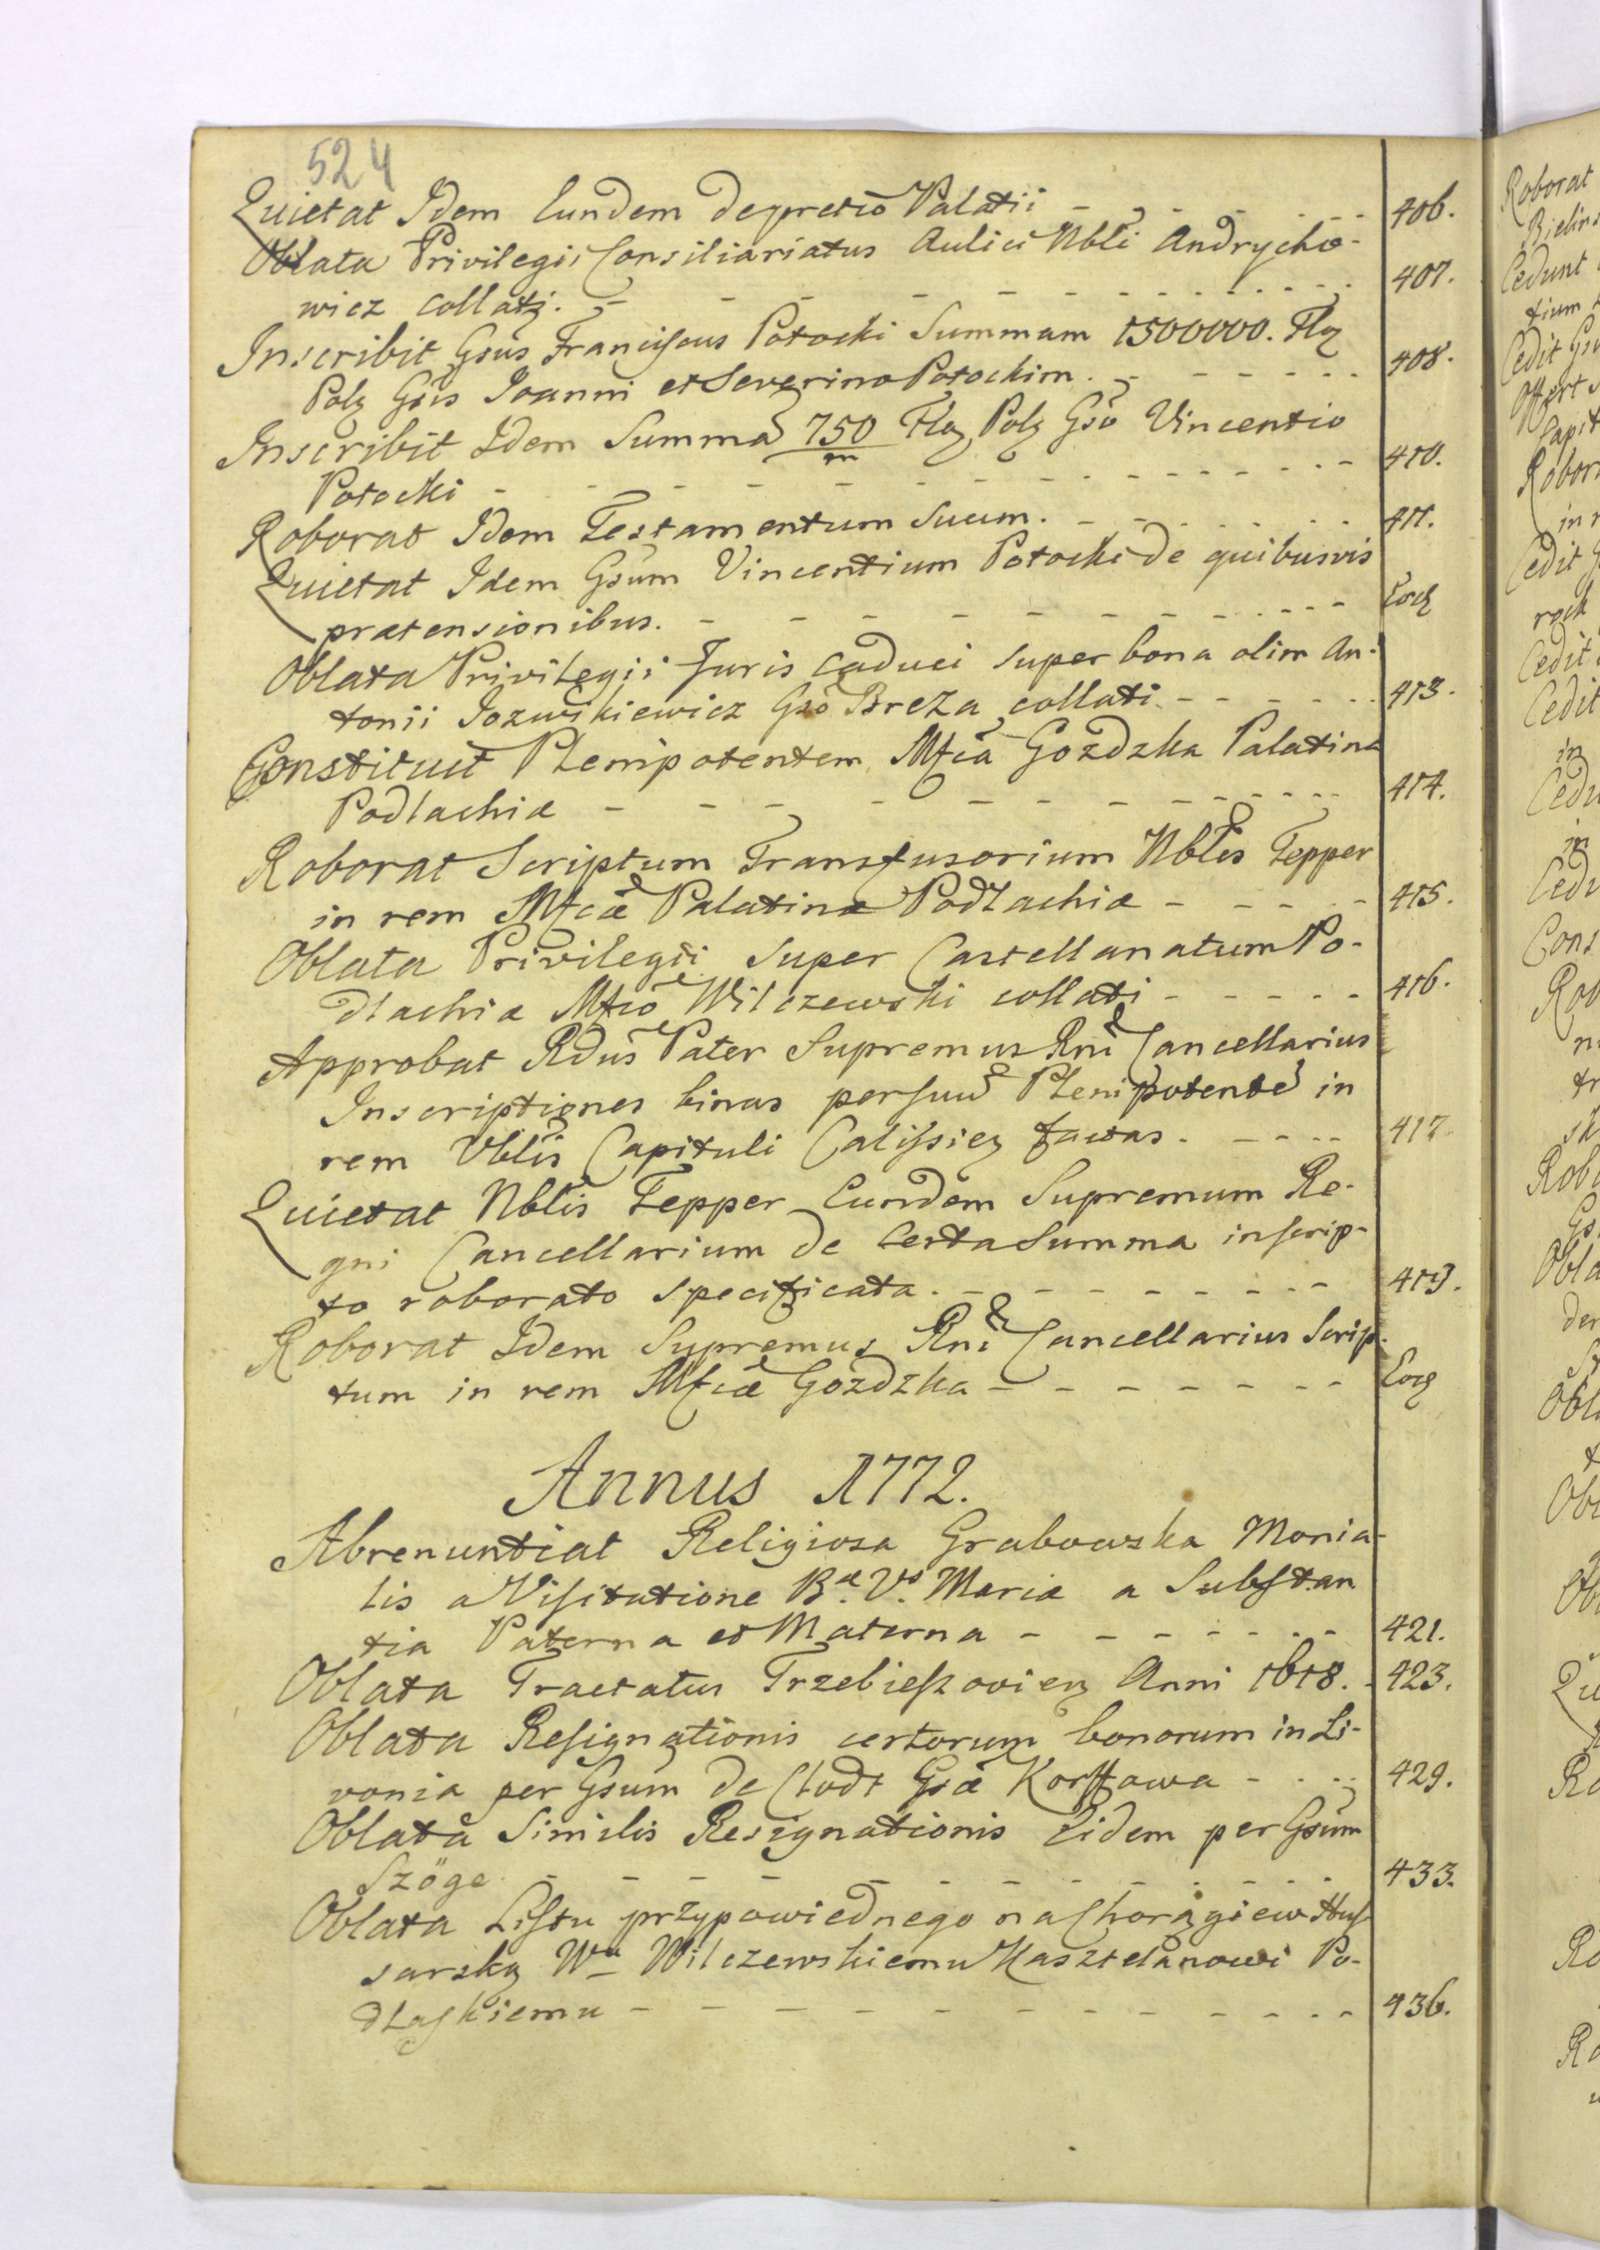 524
Quietat Idem Eundem de pretio Palatii - - - - - - 406.
Oblata Privilegii Consiliariatus Aulici Nbli Andrycho-
wicz collati. - - - - - - - - - - 407.
Inscribit Gsus Franciscus Potocki Summam 1500000. Flor
Pol Gsis Joanni et Severino Potockim. - - - - - - 408.
Inscribit Idem Summã 750/m Flor Pol Gso Vincentio
Potocki - - - - - - - - - - 410.
Roborat Idem Testamentum Suum. - - - - - - 411.
Quietat Idem Gsum Vincentium Potocki de quibusvis
prætensionibus. - - - - - - - - - Eod
Oblata Privilegii Juris Caduci super bona olim An-
tonii Jozwikiewicz Gso Breza collati - - - - - 413.
Constituit Plenipotentem Mfca Gozdzka Palatina
Podlachiæ - - - - - - - - - - 414.
Roborat Scriptum Transfusorium Nblis Tepper
in rem Mfcæ Palatinæ Podlachiæ - - - - 415.
Oblata Privilegii super Castellanatum Po-
dlachiæ Mfco Wilczewski collati - - - - - 416.
Approbat Rdus Pater Supremus Rni Cancellarius
Inscriptiones binas per suũ Plenipotentẽ in
rem Vblis Capituli Calissien factas. - - - - 417.
Quietat Nblis Tepper Eundem Supremum Re-
gni Cancellarium de Certa Summa in scrip-
to roborato specificata. - - - - - - - - 419.
Roborat Idem Supremus Rni Cancellarius Scrip-
tum in rem Mfcæ Gozdzka - - - - - - - Eod
Annus 1772.
Abrenuntiat Religiosa Grabowska Monia-
lis a Visitatione Bæ. Vs. Mariæ a Substan
tia Paterna et Materna - - - - - - - 421.
Oblata Tractatus Trzebieszovien Anni 1618. - 423.
Oblata Resignationis certorum bonorum in Li-
vonia per Gsum de Clodt Gsæ Korffowa - - - - 429.
Oblata Similis Resignationis Eidem per Gsum
Szöge - - - - - - - - - - 433.
Oblata Listu przypowiednego na Chorągiew Hus
sarską Wu Wilczewskiemu Kasztelanowi Po-
dlaskiemu - - - - - - - - - - 436.